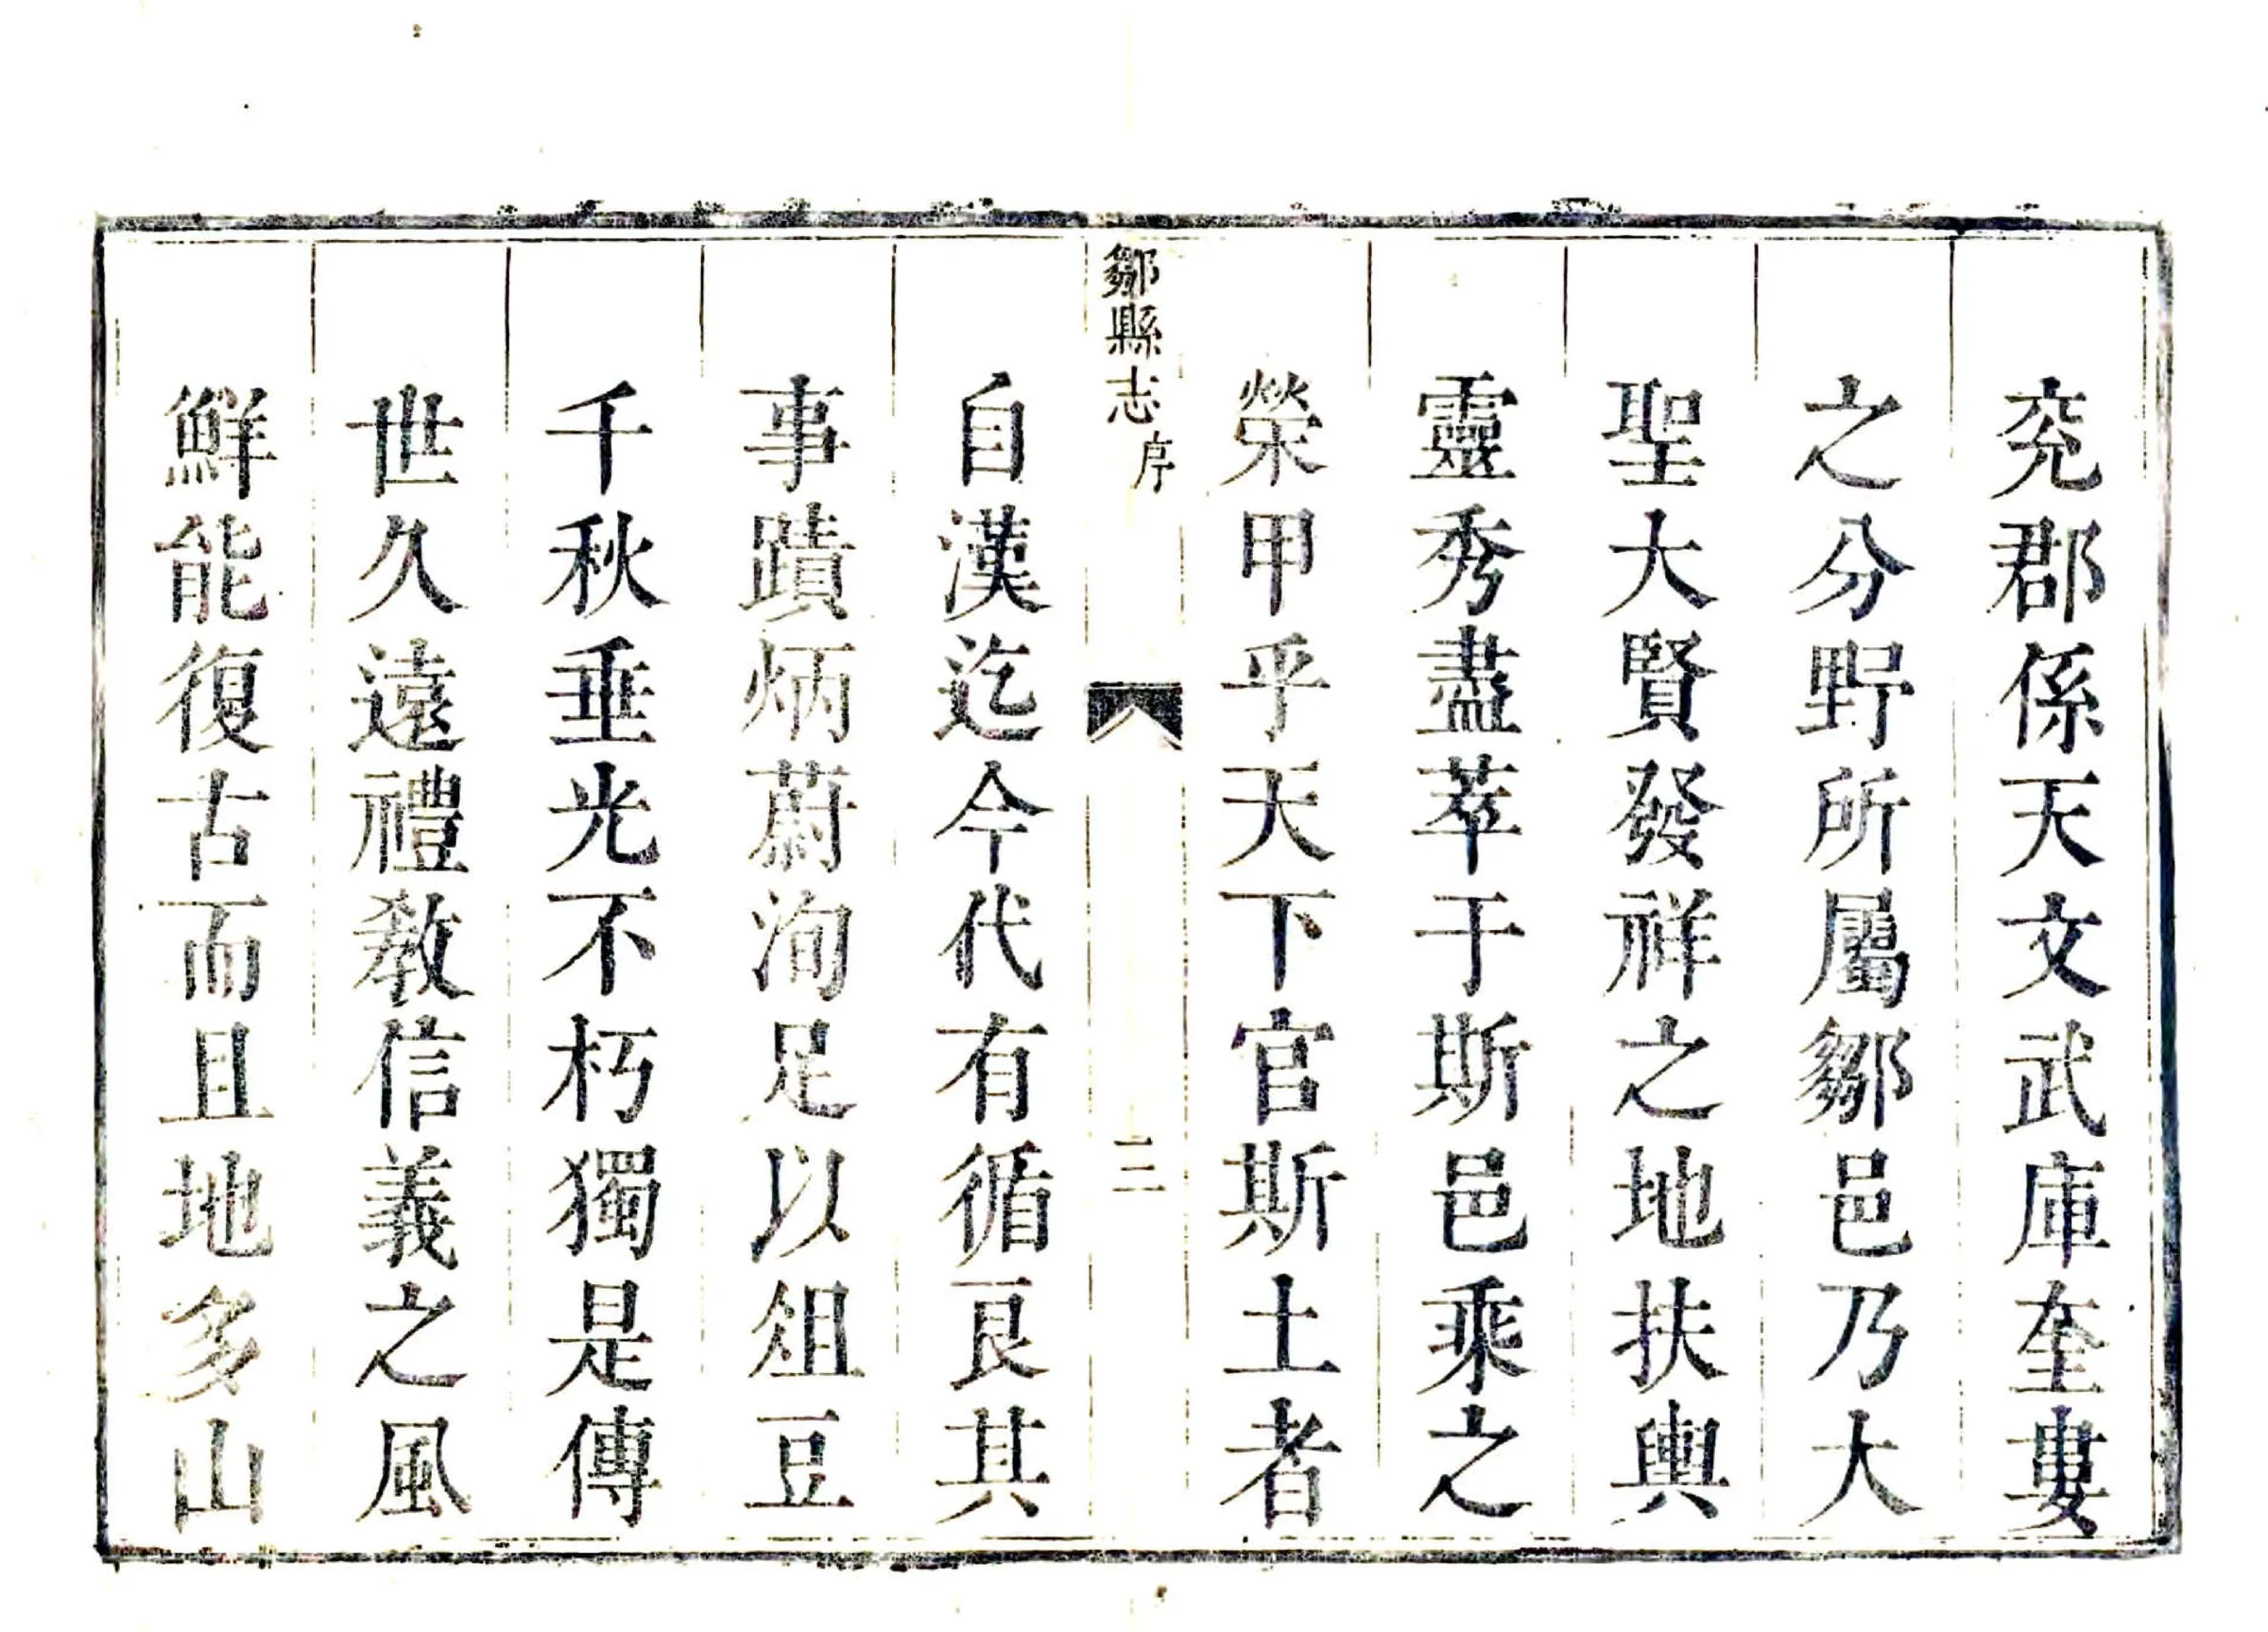 兖郡係天文武庫奎婁
之分野所屬鄒邑乃大
聖大賢發祥之地扶輿
靈秀盡萃于斯邑乘之
榮甲乎天下官斯土者
鄒縣志
序
三
自漢迄今代有循良其
事蹟炳蔚洵足以俎豆
千秋垂光不朽獨是傳
世久遠禮教信義之風
鮮能復古而且地多山